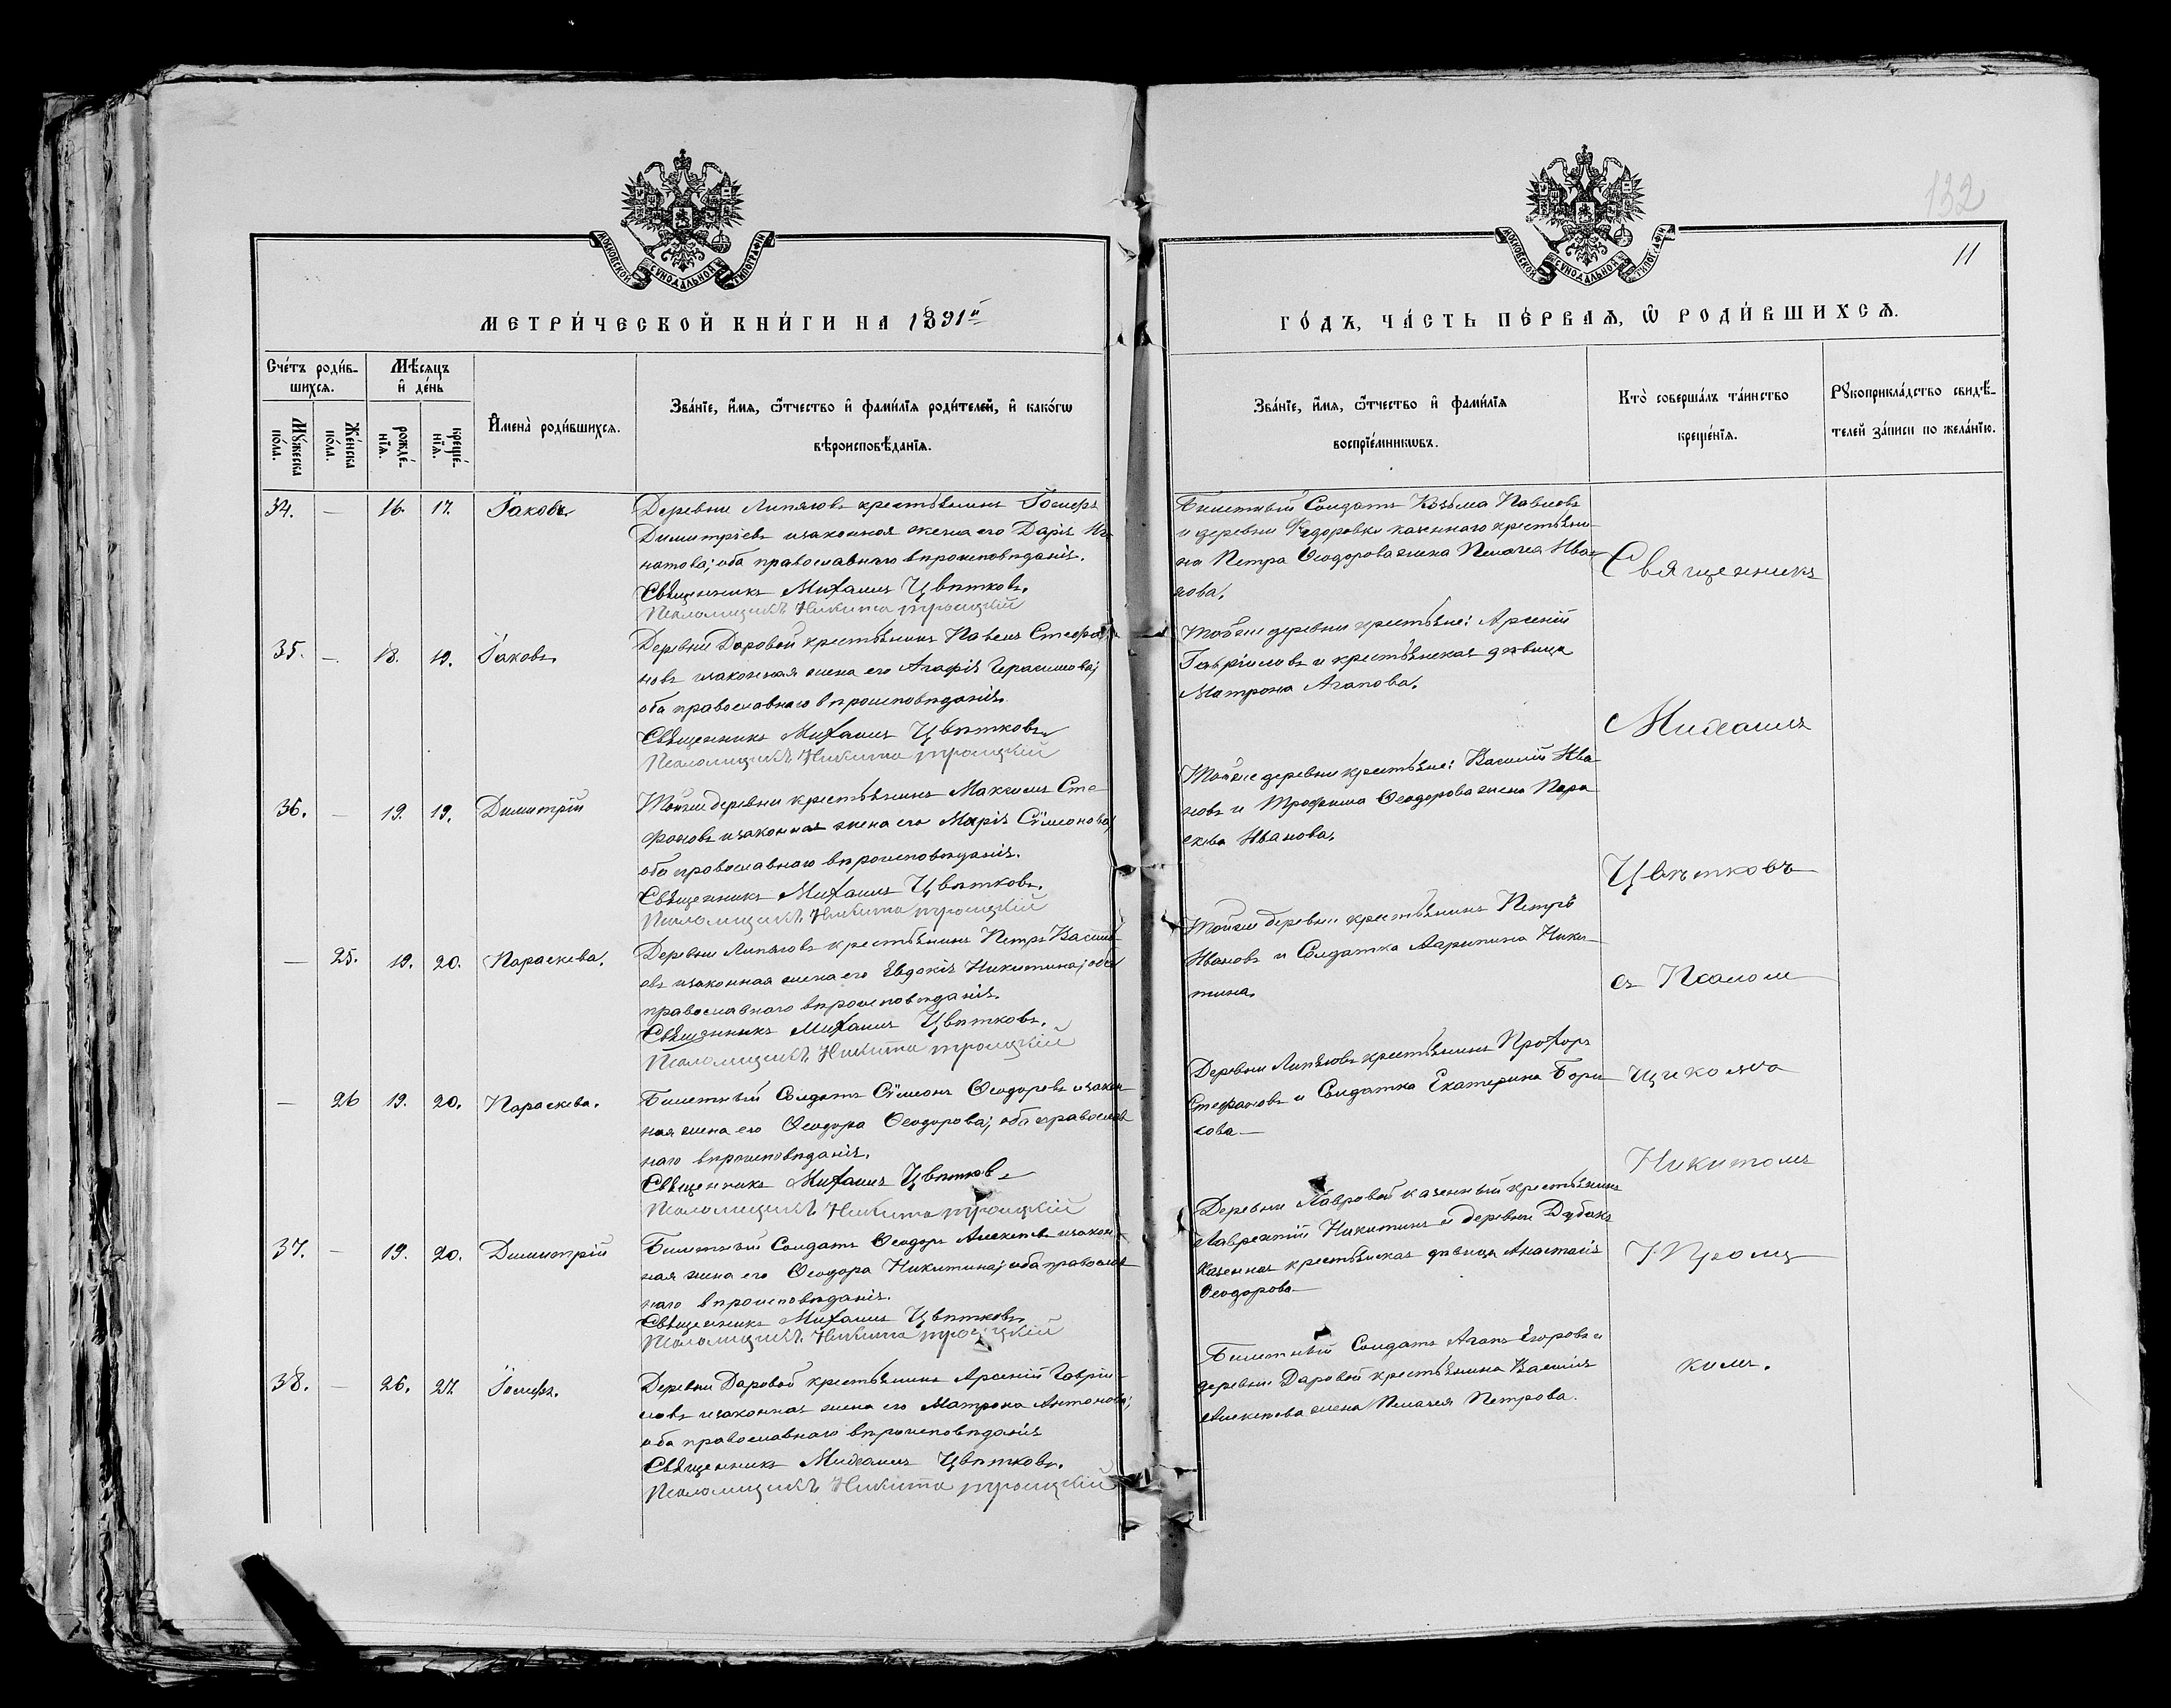 132
11
МОСКОВСКОЙ СУНОДАЛЬНОЙ ТИПОГРАФІИ
МОСКОВСКОЙ СУНОДАЛЬНОЙ ТИПОГРАФІИ
МЕТРИ́ЧЕСКОЙ КНИ́ГИ НА 1891й
ГО́ДЪ, ЧА́СТЬ ПЕ́РВАѦ, Ѡ РОДИ́ВШИХСѦ.
Сче́тъ роди́в-
шихсѧ.
Мꙋ́жеска по́ла.
Же́нска по́ла.
Мѣ́сѧцъ
и҆ де́нь
рожде́-
нїѧ.
креще́-
нїѧ.
И҆мена̀ роди́вшихсѧ.
Зва́нїе, и҆́мѧ, ѻ҆́тчество и҆ фами́лїѧ роди́телей, и҆ како́гѡ
вѣроисповѣ́данїѧ.
Зва́нїе, и҆́мѧ, ѻ҆́тчество и҆ фами́лїѧ
воспрїе́мникѡвъ.
Кто̀ соверша́лъ та́инство
креще́нїѧ.
Рꙋкоприкла́дство свидѣ́-
телей за́писи по жела́нїю.
34. — 16. 17. Іаковъ
Деревни Липяговъ крестьянинъ Іосифъ
Димитріевъ и законная жена его Дарія Иг-
натова; оба православнаго вѣроисповѣданія.
Священникъ Михаилъ Цвѣтковъ.
Псаломщикъ Никита Троицкій
Билетный Солдатъ Козьма Павловъ
и деревни Ѳедоровки казеннаго крестьяни-
на Петра Ѳеодорова жена Пелагея Ива-
нова.
35. — 18. 19. Іаковъ
Деревни Даровой крестьянинъ Павелъ Стефа-
новъ и законная жена его Агафія Герасимова;
оба православнаго вѣроисповѣданія.
Священникъ Михаилъ Цвѣтковъ
Псаломщикъ Никита Троицкій
Тойже деревни крестьяне: Арсеній
Гавріиловъ и крестьянская дѣвица
Матрона Агапова.
36. — 19. 19. Димитрій
Тойже деревни крестьянинъ Максимъ Сте-
фановъ и законная жена его Марія Сѵмеонова;
оба православнаго вѣроисповѣданія.
Священникъ Михаилъ Цвѣтковъ.
Псаломщикъ Никита Троицкій
Тойже деревни крестьяне: Василій Ива-
новъ и Трофима Ѳеодорова жена Пара-
скева Иванова.
— 25. 19. 20. Параскева.
Деревни Липяговъ крестьянинъ Петръ Василь-
евъ и законная жена его Евдокія Никитина; оба
православнаго вѣроисповѣданія.
Священникъ Михаилъ Цвѣтковъ.
Псаломщикъ Никита Троицкій
Тойже деревни крестьянинъ Петръ
Ивановъ и Солдатка Агрипина Ники-
тина.
— 26 19. 20. Параскева.
Билетный Солдатъ Сѵмеонъ Ѳеодоровъ и закон-
ная жена его Ѳеодора Ѳеодорова; оба православ-
наго вѣроисповѣданія.
Священникъ Михаилъ Цвѣтковъ
Псаломщикъ Никита Троицкій
Деревни Липяговъ крестьянинъ Прохоръ
Стефановъ и Солдатка Екатерина Бори-
сова —
37. — 19. 20. Димитрій
Билетный Солдатъ Ѳеодоръ Алексѣевъ и закон-
ная жена его Ѳеодора Никитина; оба православ-
наго вѣроисповѣданія.
Священникъ Михаилъ Цвѣтковъ
Псаломщикъ Никита Троицкій
Деревни Лавровой казенный крестьянинъ
Лаврентій Никитинъ и деревни Дубакъ
казенная крестьянская дѣвица Анастасія
Ѳеодорова —
38. — 26. 27. Іосифъ.
Деревни Даровой крестьянинъ Арсеній Гавріи-
ловъ и законная жена его Матрона Антонова;
оба православнаго вѣроисповѣданія
Священникъ Михаилъ Цвѣтковъ.
Псаломщикъ Никита Троицкій
Билетный Солдатъ Агапъ Егоровъ и
деревни Даровой крестьянина Василія
Алексѣева жена Пелагея Петрова.
Священникъ
Михаилъ
Цвѣтковъ
съ Псалом
щикомъ
Никитомъ
Троиц
кимъ.